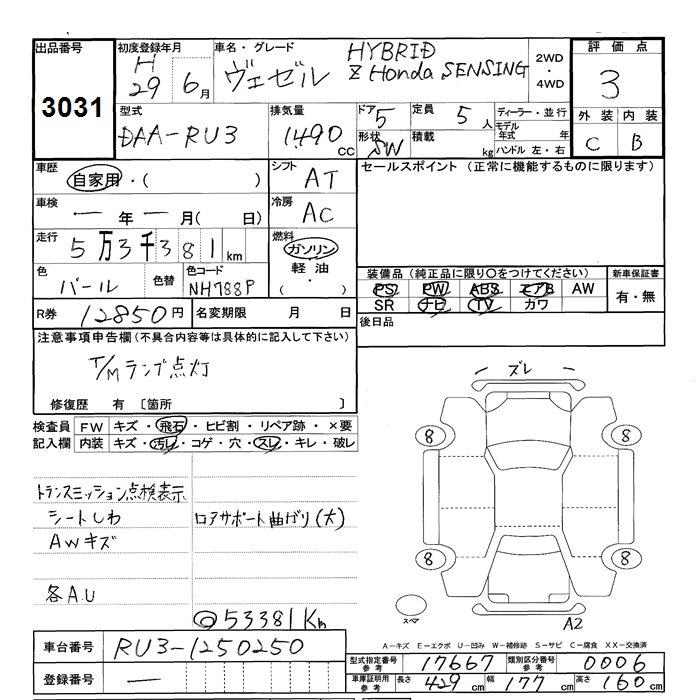 出品番号
3031
初度登録年月
H29 年 6月
車名・グレード
ヴェゼル
HYBRID
Z Honda SENSING
2WD・4WD
評価点
3
外装 内装
C B
型式
DAA-RU3
排気量
1490 cc
ドア 5
形状 SW
定員 5人
積載 kg
ディーラー・並行
モデル年式 年
ハンドル 左・右
車歴
自家用・( )
シフト
AT
セールスポイント (正常に機能するものに限ります)
車検
一年 一月( 日)
冷房
AC
走行
5万3千381km
燃料
ガソリン
軽油
・( )
色
パール
色替
色コード
NH788P
装備品 (純正品に限り○をつけてください)
新車保証書
PS PW ABS エアB AW
SR ナビ TV カワ
有・無
R券 12850円
名変期限 月 日
後日品
注意事項申告欄 (不具合内容等は具体的に記入して下さい)
T/Mランプ点灯
修復歴 有 [箇所 ]
検査員 記入欄
FW キズ・飛石・ヒビ割・リペア跡・×要
内装 キズ・汚レ・コゲ・穴・スレ・キレ・破レ
トランスミッション点検表示
シートしわ
ロアサポート曲がり(大)
AWキズ
各A.U
◎53381Km
ズレ
8 8
8 8
スペア
A2
A-キズ E-エクボ U-凹み W-補修跡 S-サビ C-腐食 XX-交換済
車台番号 RU3-1250250
登録番号 一
型式指定番号 参考 17667
類別区分番号 参考 0006
車庫証明用 参考
長さ 429cm 幅 177cm 高さ 160cm